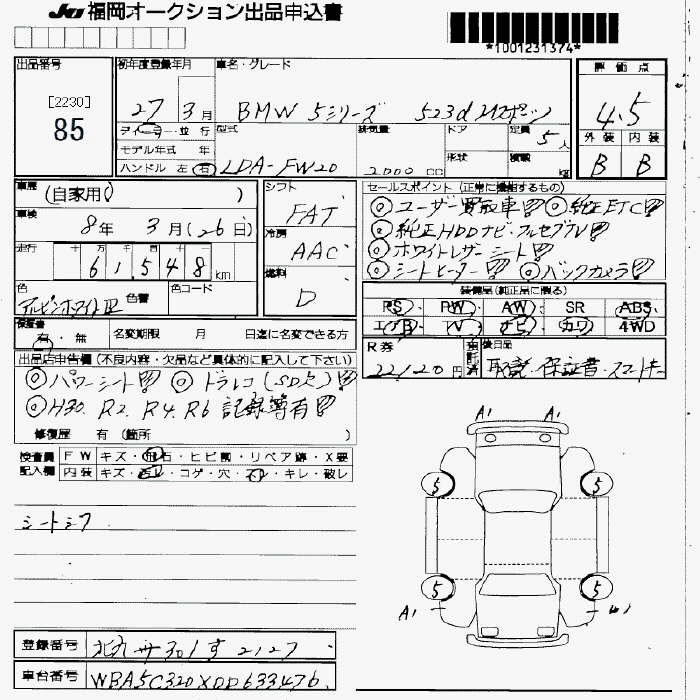 JU 福岡オークション出品申込書
*1001231374*
出品番号
[2230]
85
初年度登録年月
27 3月
車名・グレード
BMW 5シリーズ 523d Mスポーツ
評価点
4.5
外装 内装
B B
ディーラー・並行
モデル年式 年
ハンドル 左 右
型式
LDA-FW20
排気量
2000 cc
ドア
形状
定員
5人
積載
kg
車歴
(自家用 )
車検
8年 3月(26日)
走行
十 万 千 百 十 一
61,548 km
色
アルピンホワイトIII
色番
色コード
シフト
FAT
冷房
AAC
燃料
D
セールスポイント (正常に機能するもの)
◎ユーザー買取車!! ◎純正ETC!!
◎純正HDDナビ・フルセグTV!!
◎ホワイトレザーシート!!
◎シートヒーター!! ◎バックカメラ!!
装備品(純正品に限る)
PS・PW・AW・SR ABS
エアB・TV・ナビ・カワ・4WD
保証書
有・無
名変期限 月 日迄に名変できる方
R券
22,120円
預託済
後日品
取説・保証書・スマートキー
出品店申告欄(不良内容・欠品など具体的に記入して下さい)
◎パワーシート!! ◎ドラレコ(SD欠)!!
◎H30. R2. R4. R6 記録簿有!!
修復歴 有 (箇所 )
検査員記入欄
FW キズ・飛石・ヒビ割・リペア跡・X要
内装 キズ・汚レ・コゲ・穴・スレ・キレ・破レ
シートシワ
A1 A1
5 5
5 5
A1
登録番号
北九州 301 す 2127
車台番号
WBA5C320X0D633476